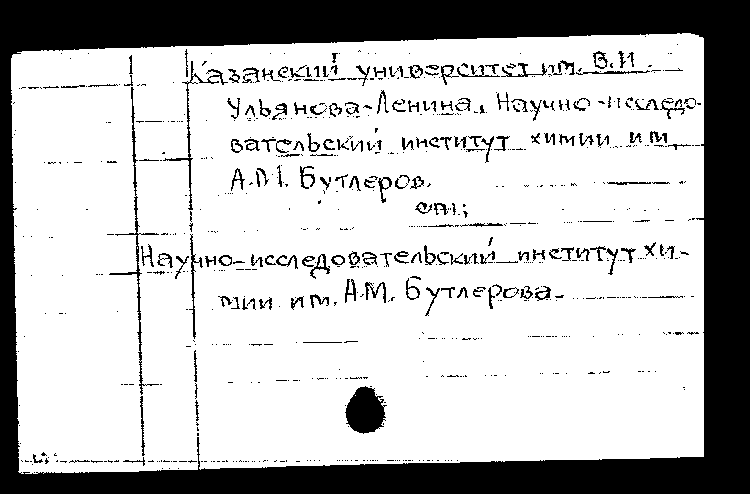 Казанский университет им. В.И.
Ульянова-Ленина. Научно-исследо-
вательский институт химии им.
А.М. Бутлеров.
см.;
Научно-исследовательский институт хи-
мии им. А.М. Бутлерова.